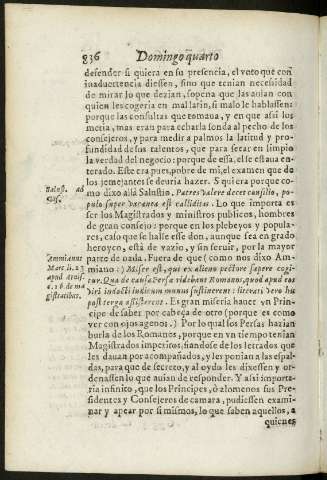 836 Domingo quarto
defender si quiera en su presencia, el voto que con
inaduertencia diessen, sino que tenian necesidad
de mirar lo que dezian, sopena que las auian con
quien les cogeria en mal latin, si malo le hablassen:
porque las consultas que tomaua, y en que assi los
metia, mas eran para echarla sonda al pecho de los
consejeros, y para medir a palmos la latitud y pro-
fundidad de sus talentos, que para sacar en limpio
la verdad del negocio: porque de essa, el se estaua en-
terado. Este era pues, pobre de mi, el examen que de
los semejantes se deuria hazer. Si quiera porque co-
Salust. ad
mo dixo allà Salustio, Patres valere decet consilio, po-
pulo super vacanea est calliditas. Lo que importa es
ser los Magistrados y ministros publicos, hombres
de gran consejo: porque en los plebeyos y popula-
res, caso que se halle esse don, aunque sea en grado
heroyco, està de vazio, y sin seruir, por la mayor
Ammianus
parte de oxala. Fuera de que (como nos dixo Am-
Marc. li. 23
miano:) Miser est, qui ex alieno pectore sapere cogi-
tur. Qua de causa Persæ ridebant Romanos, quod apud eos
viri indocti iudicum munus sustinerent: literati vero his
gistratibus.
post terga assisterent. Es gran miseria hazer vn Prin-
cipe de saber por cabeça de otro (porque es como
ver con ojos agenos.) Por lo qual los Persas hazian
burla de los Romanos, porque en vn tiempo tenian
Magistrados imperitos, fiandose de los letrados que
les dauan por acompañados, y les ponian a las espal-
das, para que de secreto, y al oydo les dixessen y or-
denassen lo que auian de responder. Y assi importa-
ria infinito, que los Principes, ò alomenos sus Pre-
sidentes y Consejeros de camara, pudiessen exami-
nar y apear por si mismos, lo que saben aquellos, a
quienes